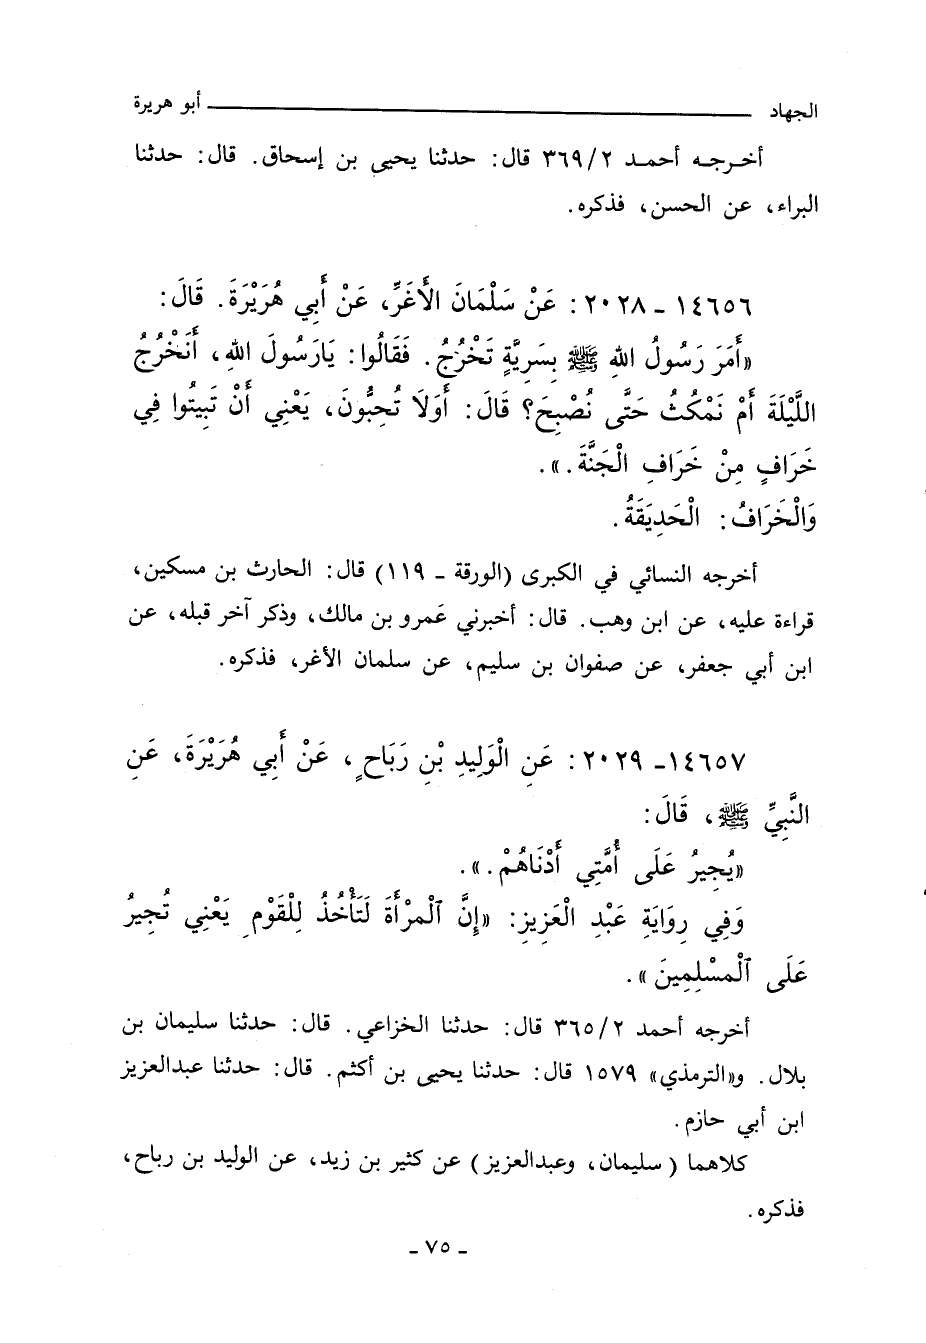 الجهاد أبو هريرة
أخرجه أحمد ٣٦٩/٢ قال: حدثنا يحيى بن إسحاق. قال: حدثنا
البراء، عن الحسن، فذكره.
١٤٦٥٦ - ٢٠٢٨: عَنْ سَلْمَانَ الأَغَرِّ، عَنْ أَبِي هُرَيْرَةَ. قَالَ:
«أَمَرَ رَسُولُ اللهِ ﷺ بِسَرِيَّةٍ تَخْرُجُ. فَقَالُوا: يَارَسُولَ اللهِ، أَنَخْرُجُ
اللَّيْلَةَ أَمْ نَمْكُثُ حَتَّى نُصْبِحَ؟ قَالَ: أَوَلَا تُحِبُّونَ، يَعْنِي أَنْ تَبِيتُوا فِي
خَرَافٍ مِنْ خَرَافِ الْجَنَّةَ.».
وَالْخَرَافُ: الْحَدِيَقَةُ.
أخرجه النسائي في الكبرى (الورقة - ١١٩) قال: الحارث بن مسكين،
قراءة عليه، عن ابن وهب. قال: أخبرني عَمرو بن مالك، وذكر آخر قبله، عن
ابن أبي جعفر، عن صفوان بن سليم، عن سلمان الأغر، فذكره.
١٤٦٥٧- ٢٠٢٩: عَنِ الْوَلِيدِ بْنِ رَبَاحٍ، عَنْ أَبِي هُرَيْرَةَ، عَنِ
النَّبِيِّ ﷺ، قَالَ:
«يُجِيرُ عَلَى أُمَّتِي أَدْنَاهُمْ.».
وَفِي رِوَايَةِ عَبْدِ الْعَزِيزِ: «إِنَّ ٱلْمرْأَةَ لَتَأْخُذُ لِلْقَوْمِ يَعْنِي تُجِيرُ
عَلَى ٱلْمسْلِمِينَ».
أخرجه أحمد ٣٦٥/٢ قال: حدثنا الخزاعي. قال: حدثنا سليمان بن
بلال. و«الترمذي» ١٥٧٩ قال: حدثنا يحيى بن أكثم. قال: حدثنا عبدالعزيز
ابن أبي حازم.
كلاهما (سليمان، وعبدالعزيز) عن كثير بن زيد، عن الوليد بن رباح،
فذكره.
- ٧٥ -